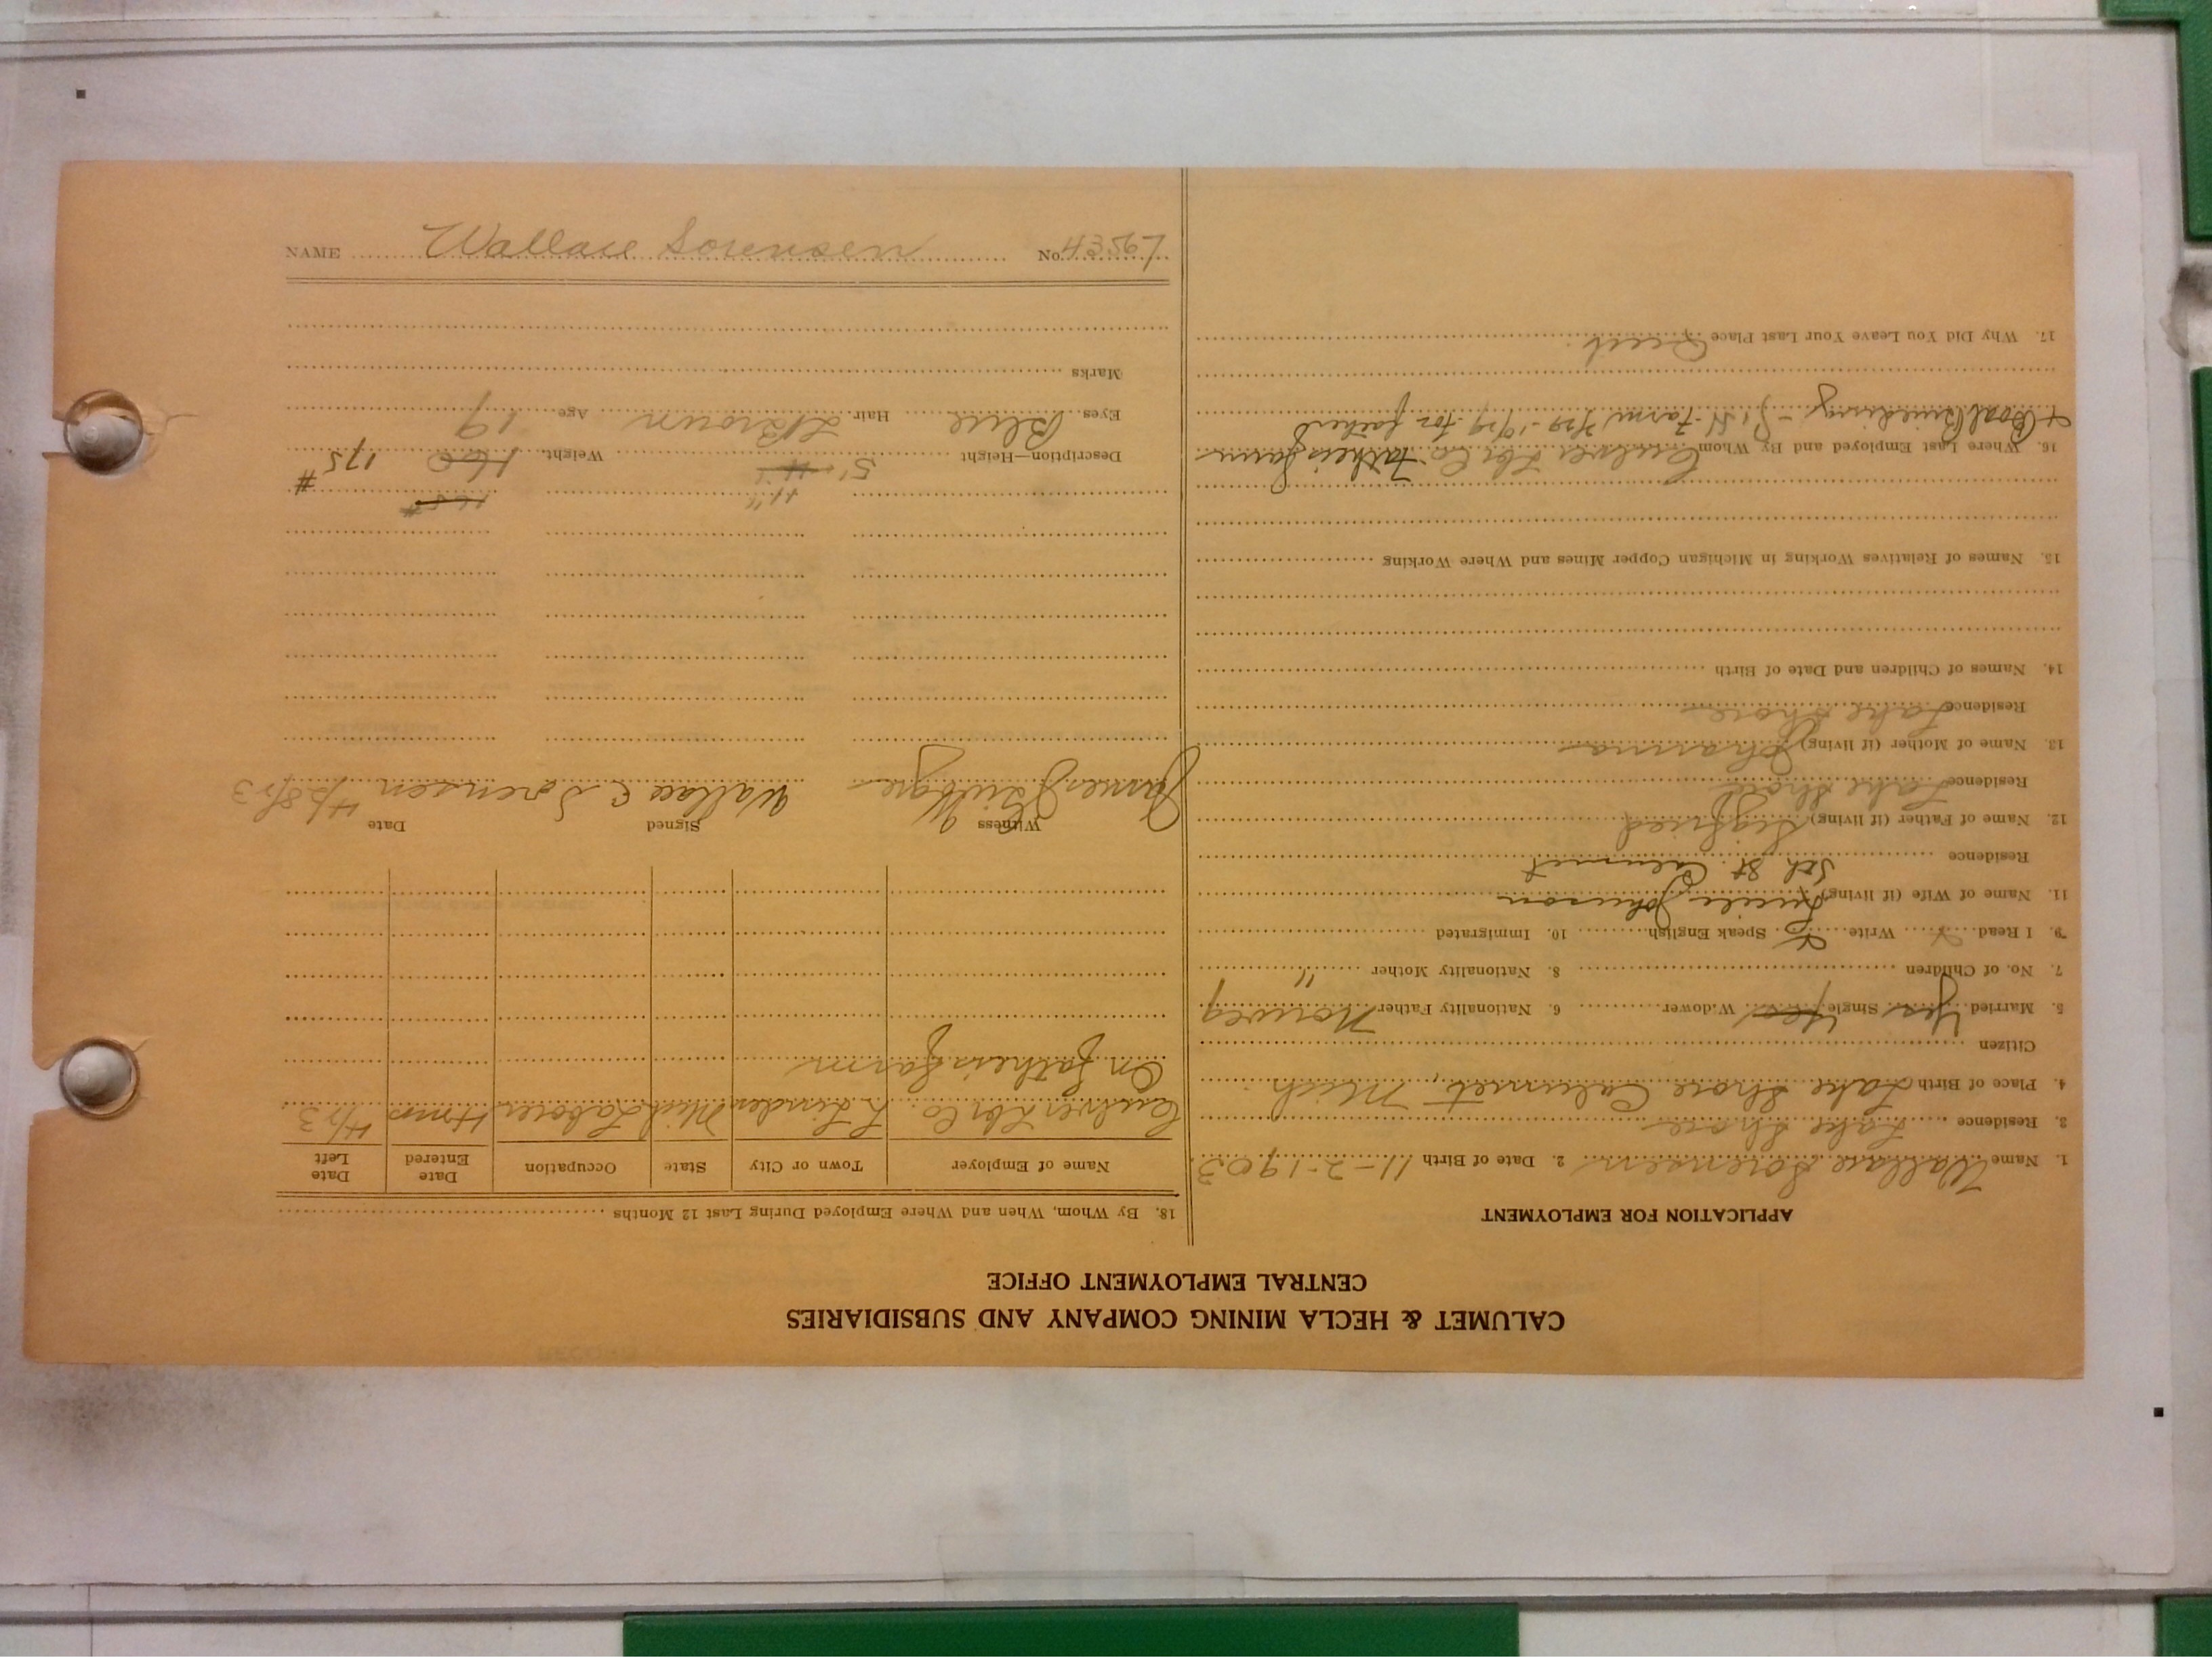 CALUMET & HECLA MINING COMPANY AND SUBSIDIARIES
CENTRAL EMPLOYMENT OFFICE
APPLICATION FOR EMPLOYMENT
1. Name Wallace Sorensen 2. Date of Birth 11-2-1903
3. Residence Lake Shore
4. Place of Birth Lake Shore Calumet, Mich
Citizen
5. Married Yes Single Yes Widower 6. Nationality Father Norweg
7. No. of Children 8. Nationality Mother "
9. I Read Write Speak English 10. Immigrated
11. Name of Wife (if living) Lucile Johnson
5th St. Calumet
Residence
12. Name of Father (if living) Sigfried
Residence Lake Shore
13. Name of Mother (if living) Johanna
Residence Lake Shore
14. Names of Children and Date of Birth
15. Names of Relatives Working in Michigan Copper Mines and Where Working
16. Where Last Employed and By Whom Culver Lbr Co. Fathers farm
+ Road Building - Farm 7/29-10/29 for father
17. Why Did You Leave Your Last Place Quit.
18. By Whom, When and Where Employed During Last 12 Months
Name of Employer Town or City State Occupation Date Entered Date Left
Culver Lbr Co. L. Linden Mich Laborer 4 mos 4/23
On fathers farm
Witness Signed Date
James Wallace C. Sorensen 4/28/23
11" 165#
Description—Height 5' 11 Weight 160 175#
Eyes Blue Hair L Brown Age 19
Marks
NAME Wallace Sorensen No. 43567